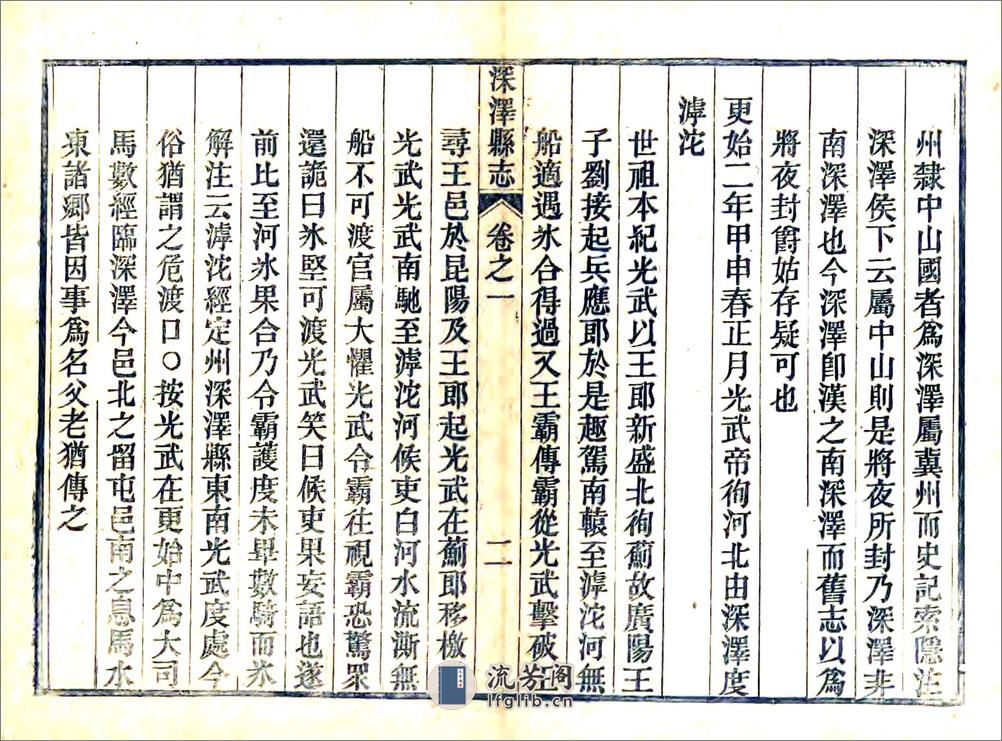 州隸中山國者爲深澤屬冀州而史記索隱注
深澤侯下云屬中山則是將夜所封乃深澤非
南深澤也今深澤卽漢之南深澤而舊志以爲
將夜封爵姑存疑可也
更始二年甲申春正月光武帝徇河北由深澤度
滹沱
世祖本紀光武以王郎新盛北徇薊故廣陽王
子劉接起兵應郎於是趣駕南轅至滹沱河無
船適遇氷合得過又王霸傳霸從光武擊破王
深澤縣志 卷之一 二
尋王邑於昆陽及王郎起光武在薊郎移檄
光武光武南馳至滹沱河候吏白河水流澌無
船不可渡官屬大懼光武令霸往視霸恐驚眾
還詭曰氷堅可渡光武笑曰候吏果妄語也遂
前比至河氷果合乃令霸護度未畢數騎而氷
解注云滹沱經定州深澤縣東南光武度處今
俗猶謂之危渡口○按光武在更始中爲大司
馬數經臨深澤今邑北之留屯邑南之息馬水
東諸鄉皆因事爲名父老猶傳之
流芳阁
lfglib.cn